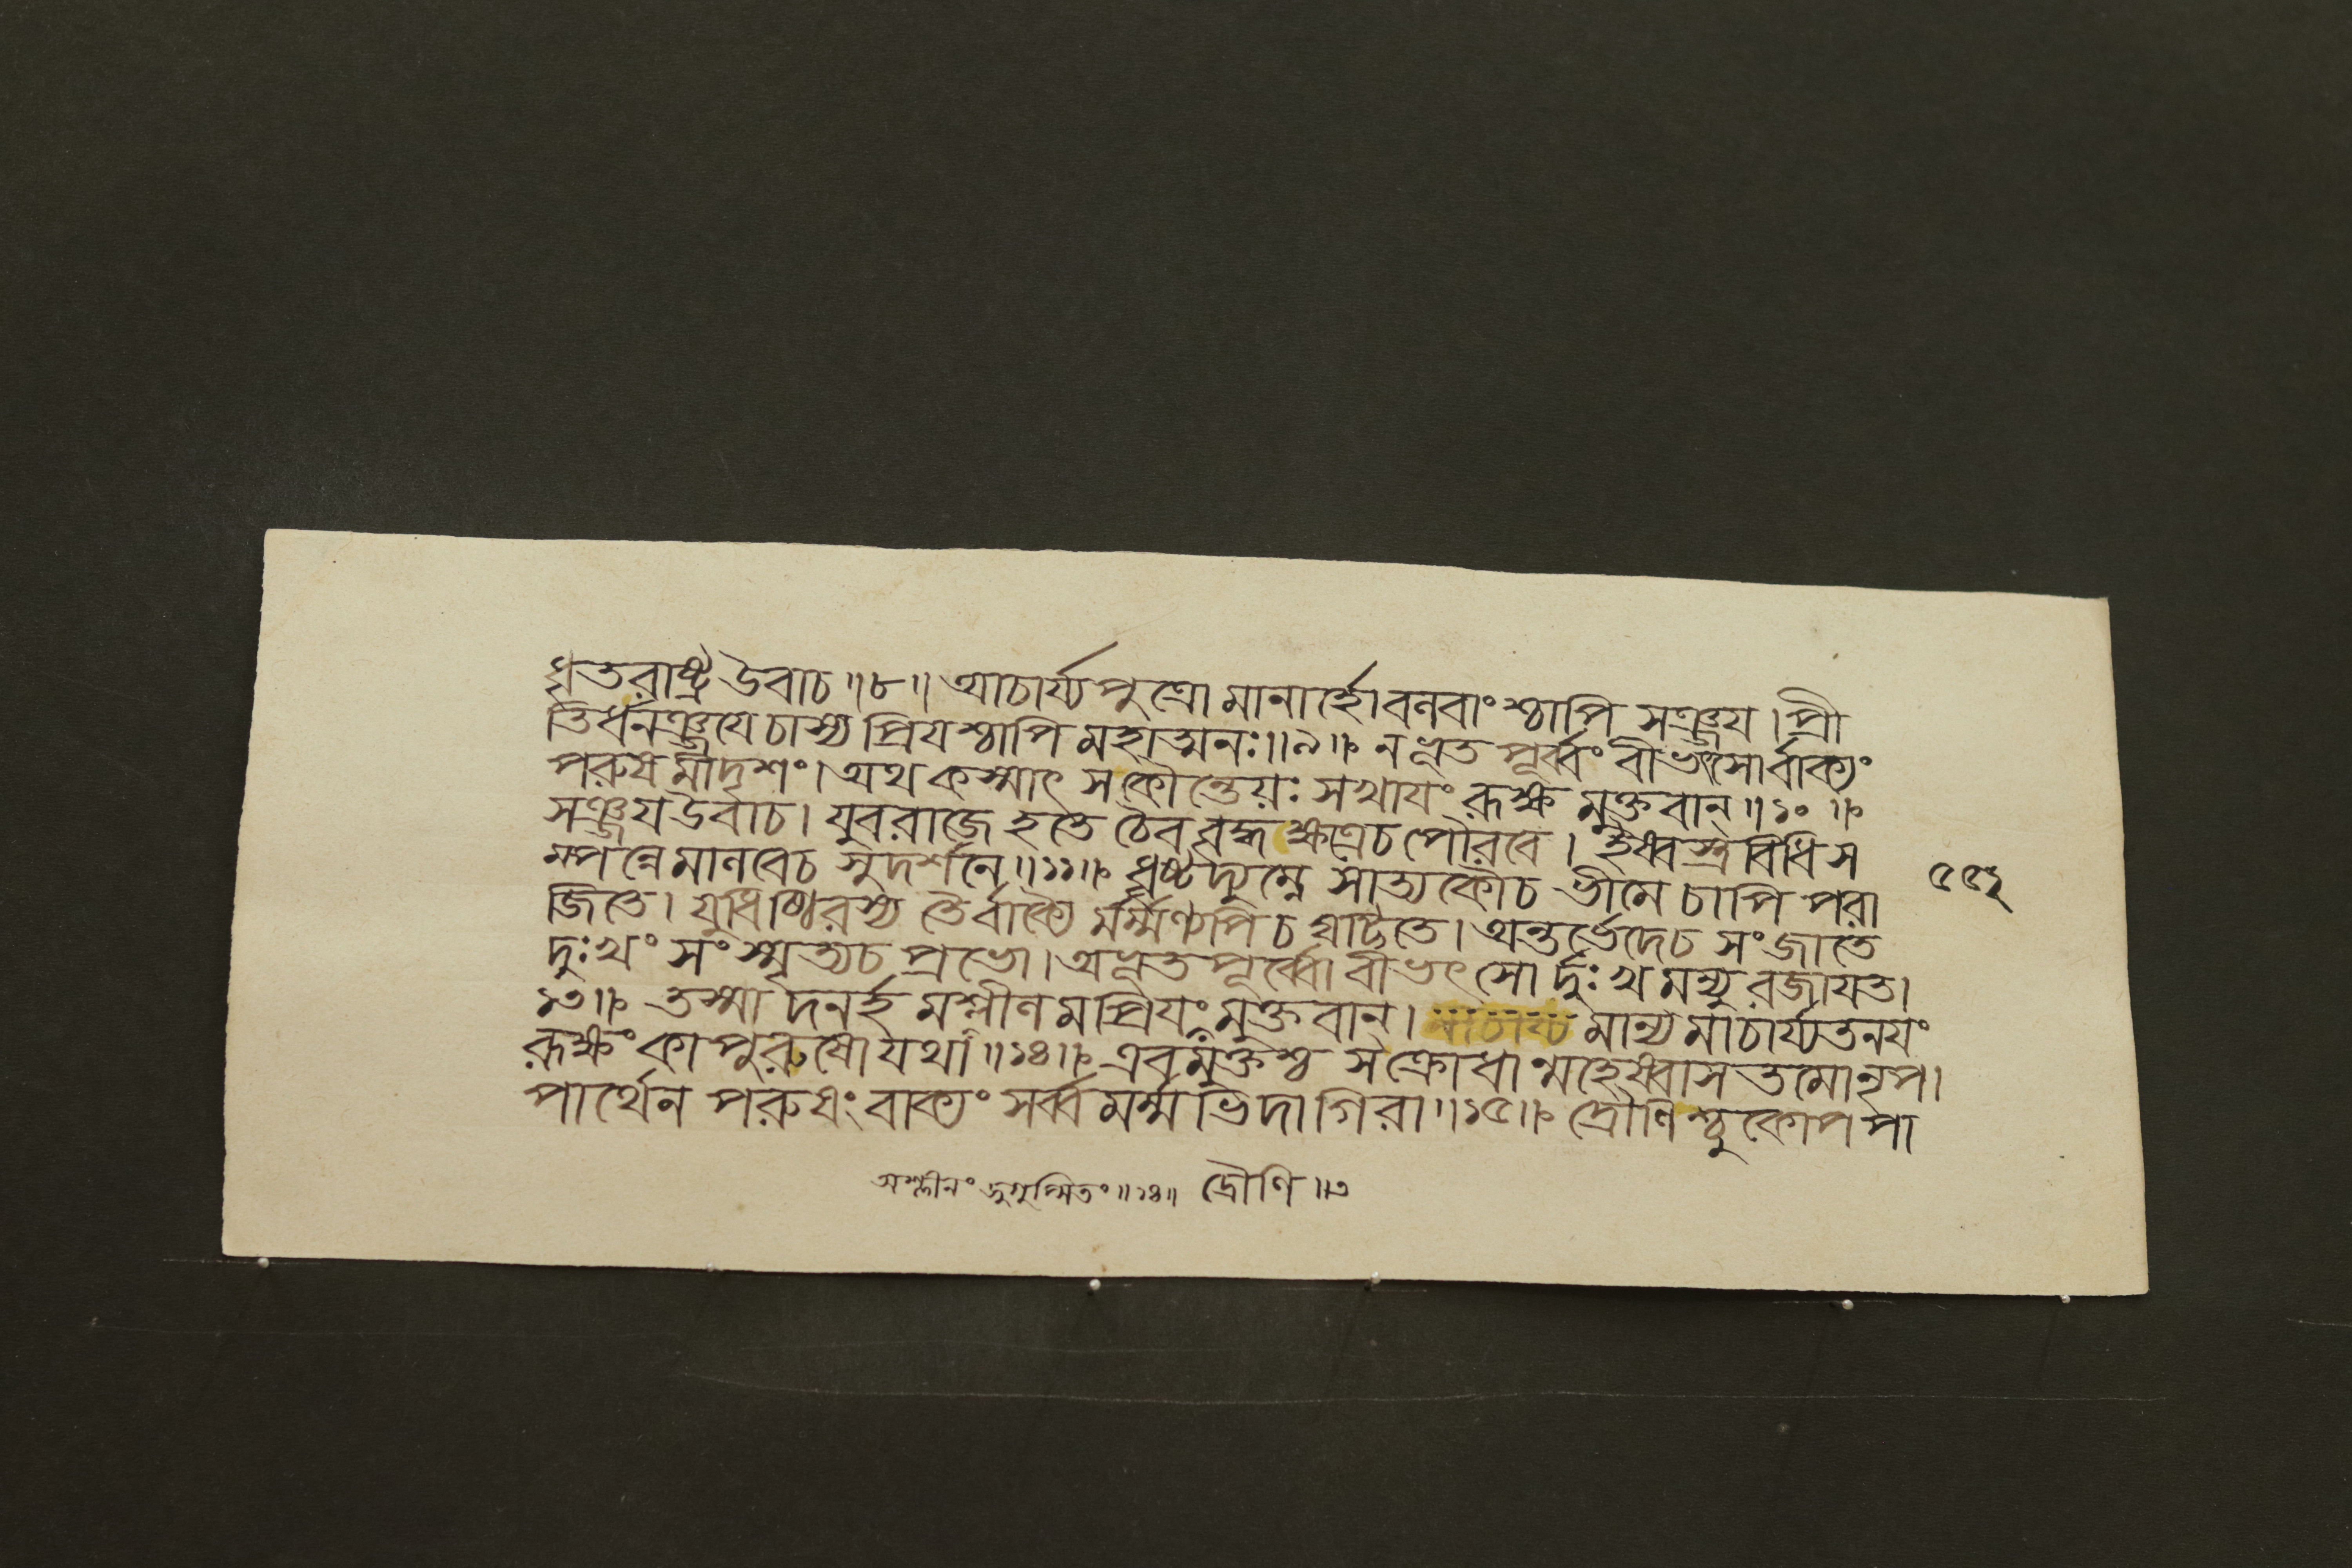 ধৃতরাষ্ট্র উবাচ॥৮॥ আচার্য্যপুত্রো মানার্হো বলবাংশ্চাপি সঞ্জয। প্রী
তির্ধনঞ্জযে চাস্য প্রিযশ্চাপি মহাত্মনঃ॥৯॥ ন ভূতপূর্ব্বং বীভৎসোর্বাক্যং
পরুষমীদৃশং। অথ কস্মাৎ সকৌন্তেয়ঃ সখাযং রূক্ষ মুক্তবান্॥১০॥
সঞ্জয উবাচ। যুবরাজে হতে চৈব বৃদ্ধক্ষত্রে চ পৌরবে। ইষ্বস্ত্রবিধিস
ম্পন্নে মালবেচ সুদর্শনে॥১১॥ ধৃষ্টদ্যুম্নে সাত্যকৌচ ভীমে চাপি পরা
৫৫২
জিতে। যুধিষ্ঠিরস্য তৈর্বাক্যৈ র্মর্ম্মণ্যপিচ ঘট্টিতে। অন্তর্ভেদেচ সংজাতে
দুঃখং সংস্মৃত্যচ প্রভো। অভূতপূর্ব্বো বীভৎসো র্দুঃখমন্যু রজাযত।
১৩॥ তস্মাদনর্হ মশ্লীল মপ্রিযং মুক্তবান্। মান্য মাচার্য্যতনযং
রূক্ষং কাপুরুষো যথা॥১৪॥ এবমুক্তশ্ব সক্রোধা ন্মহেষ্বাসতমোনৃপ।
পার্থেন পরুষং বাক্যং সর্ব্বমর্ম্মভিদাগিরা॥১৫॥ দ্রৌণিশ্চুকোপ পা
অশ্লীলং জুগুপ্সিতং॥১৪॥ দ্রৌণি॥৩